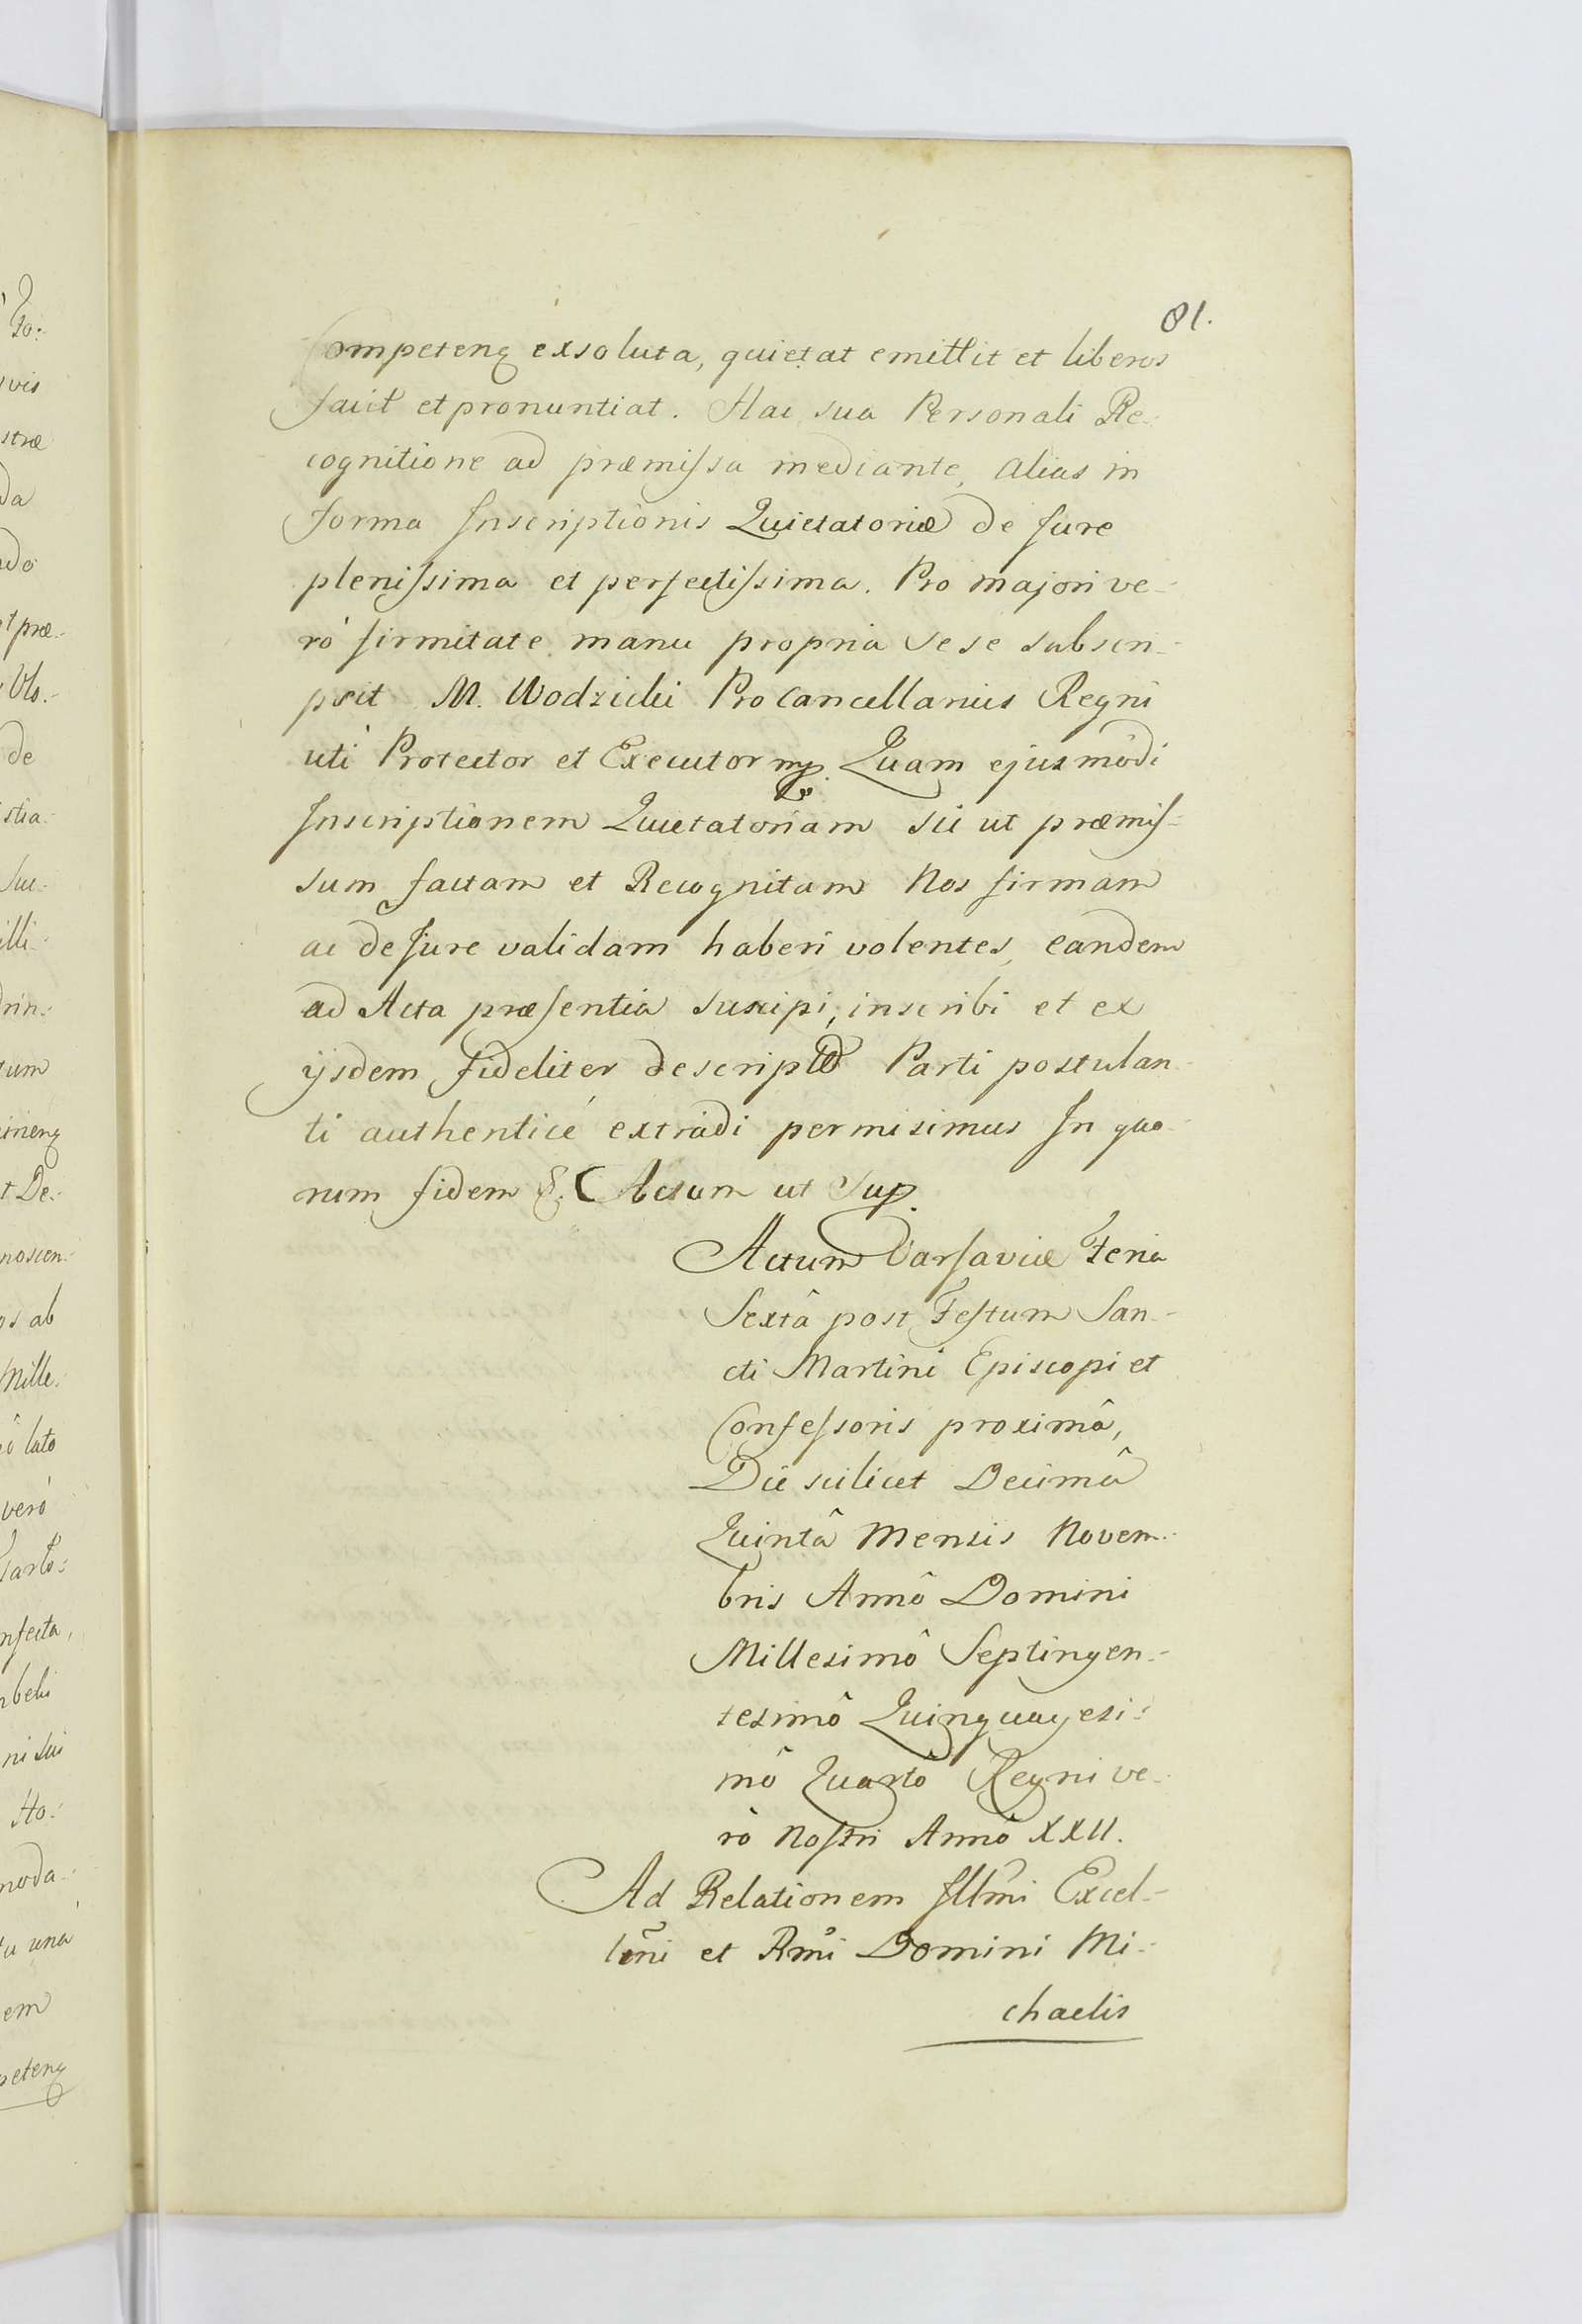 81.
Competenq exsoluta, quietat emittit et liberos
facit et pronuntiat. Hac sua Personali Re-
cognitione ad præmiſsa mediante, alias in
forma Inscriptionis Quietatoriæ de Jure
pleniſsima et perfectiſsima. Pro majori ve-
ró firmitate manu propria sese subscri-
psit M. Wodzicki ProCancellarius Regni
uti Protector et Executor mp. Quam ejusmodi
Inscriptionem Quietatoriam sic ut præmiſ-
sum factam et Recognitam Nos firmam
ac de Jure validam haberi volentes, eandem
ad Acta præsentia suscipi, inscribi et ex
ijsdem fideliter descriptã Parti postulan-
ti authenticé extradi permisimus In quo-
rum fidem &. Actum ut Sup.
Actum Varſaviæ Feria
Sextâ post Feſtum San-
cti Martini Episcopi et
Confeſsoris proximâ,
Die scilicet Decimâ
Quintâ Mensis Novem-
bris Annô Domini
Millesimô Septingen-
tesimô Quinquagesi-
mô Quartô Regni ve-
rò Noſtri Annô XXII.
Ad Relationem Illmi Excel-
lmi et Rmi Domini Mi-
chaelis